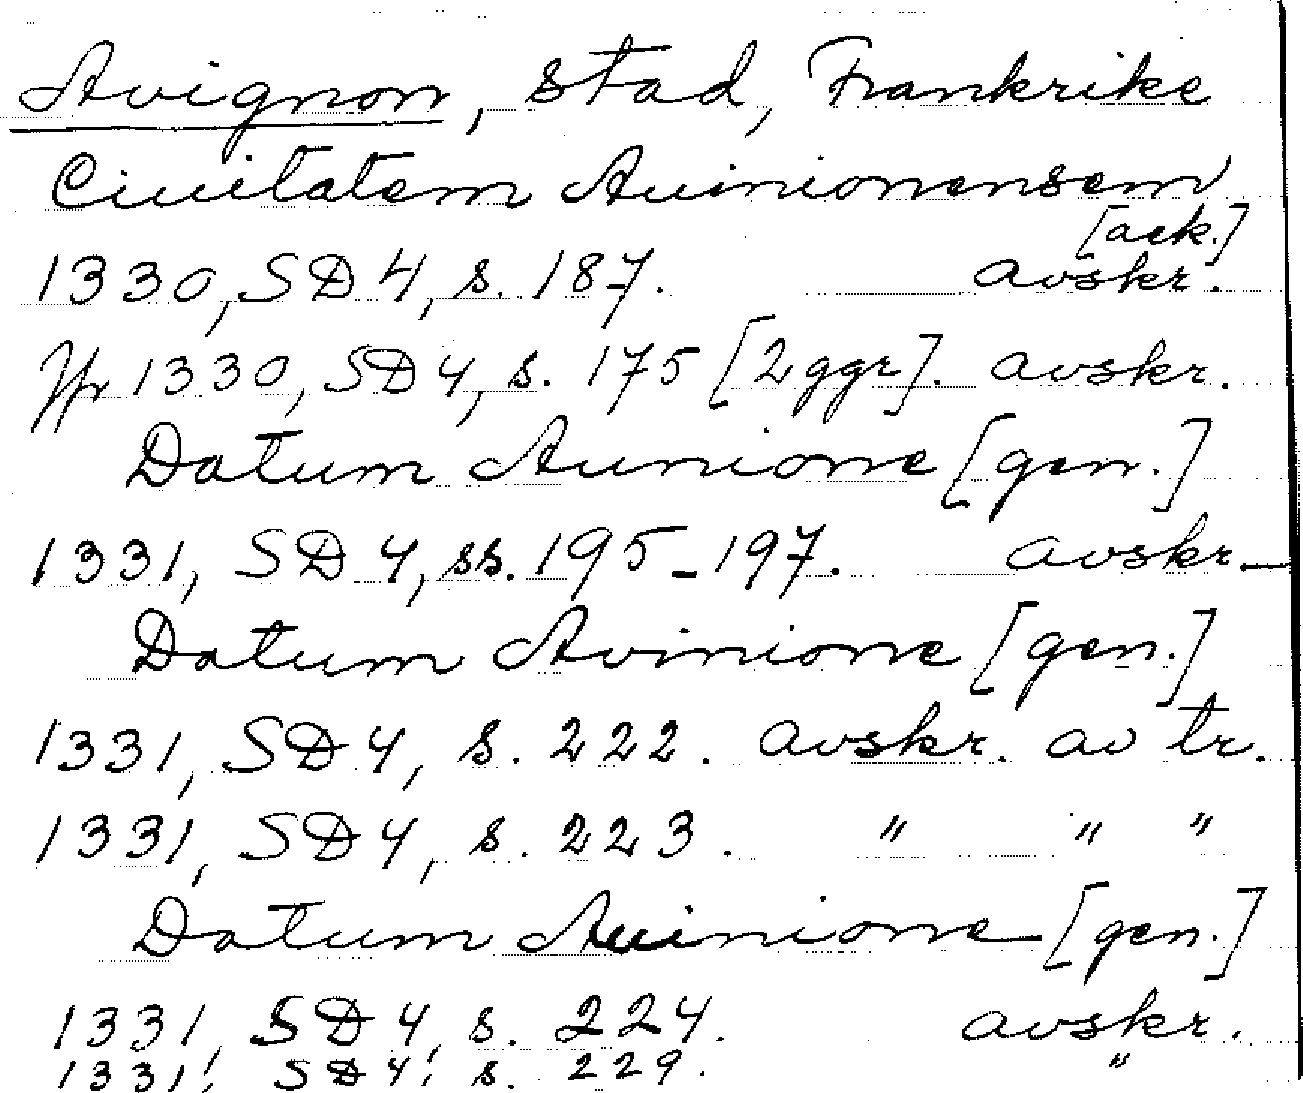 Avignon, stad, Frankrike
Ciuitatem Auinionensem
[ack.]
1330, SD 4, s. 187. avskr.
Jfr 1330, SD 4, s. 175 [2 ggr]. avskr.
Datum Auinione [gen.]
1331, SD 4, ss. 195-197. avskr.
Datum Avinione [gen.]
1331, SD 4, s. 222. avskr. av tr.
1331, SD 4, s. 223. " " "
Datum Auinione [gen.]
1331, SD 4, s. 224. avskr.
1331, SD 4, s. 229. "